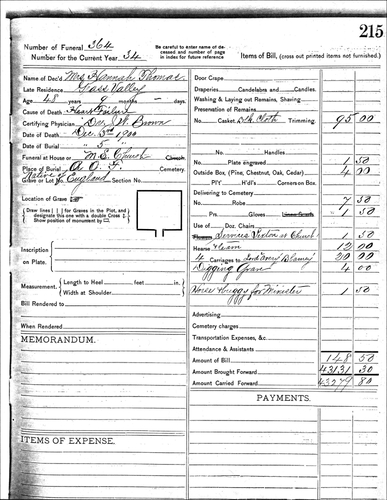 215
Number of Funeral 364
Number for the Current Year 34
Be careful to enter name of deceased and number of page in index for future reference
Items of Bill, (cross out printed items not furnished.)
Name of Dec'd Mrs Hannah Thomas
Late Residence Grass Valley
Age 48 years 9 months - days
Cause of Death Heart Failure
Certifying Physician Doc. W. Brown
Date of Death Dec. 3rd 1900
Date of Burial " 5 "
Funeral at House or M.E. Church Church
Place of Burial Cemetery
Native of England
Grave or Lot No. Section No.
Location of Grave
Draw lines | | for Graves in the Plot, and designate this one with a double Cross
Show position of monument by
Inscription on Plate.
Measurement. Length to Heel feet in.
Width at Shoulder in.
Bill Rendered to
When Rendered
MEMORANDUM.
ITEMS OF EXPENSE.
Door Crape
Draperies Candelabras and Candles
Washing & Laying out Remains, Shaving
Preservation of Remains
No. Casket Blk Cloth Trimming, 95 00
No. Handles
No. Plate engraved 1 50
Outside Box (Pine, Chestnut, Oak, Cedar) 4 00
PIY H'dl's Corners on Box
Delivering to Cemetery
No. Robe 7 50
Prs. Gloves 1 50
Use of Doz. Chairs
Services Sexton at Church 1 50
Hearse & team 12 00
4 Carriages to 20 00
Digging Grave 4 00
Horse & Buggy for Minister 1 50
Advertising
Cemetery charges
Transportation Expenses, &c.
Attendance & Assistants
Amount of Bill 148 50
Amount Brought Forward 43131 30
Amount Carried Forward 43279 80
PAYMENTS.